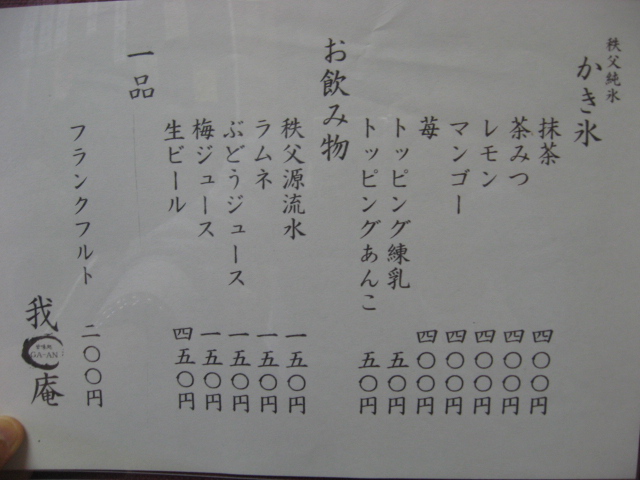 秩父純氷
かき氷
抹茶 四〇〇円
茶みつ 四〇〇円
レモン 四〇〇円
マンゴー 四〇〇円
苺 四〇〇円
トッピング練乳 五〇円
トッピングあんこ 五〇円
お飲み物
秩父源流水 一五〇円
ラムネ 一五〇円
ぶどうジュース 一五〇円
梅ジュース 一五〇円
生ビール 四五〇円
一品
フランクフルト 二〇〇円
我庵
GA-AN